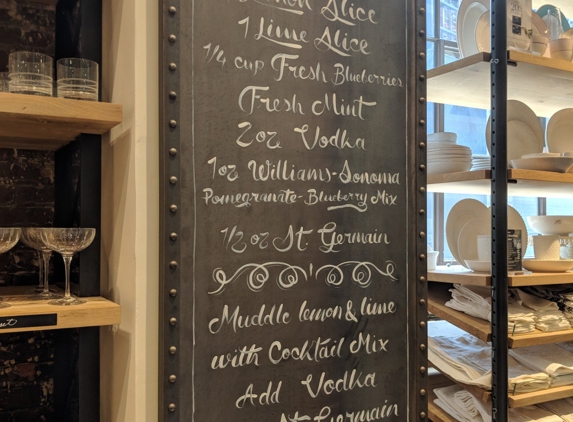 Lemon Slice
1 Lime Slice
1/4 cup Fresh Blueberries
Fresh Mint
2oz Vodka
1oz Williams-Sonoma
Pomegranate-Blueberry Mix
1/2 oz St. Germain
Muddle lemon & lime
with Cocktail Mix
Add Vodka
St. Germain